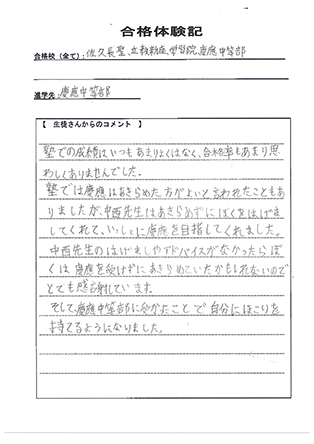 合格体験記
合格校（全て）：佐久長聖、立教新座、学習院、慶應中等部
進学先：慶應中等部
【　生徒さんからのコメント　】
塾での成績はいつもあまりよくはなく、合格率もあまり思
わしくありませんでした。
塾では慶應はあきらめた方がよいと言われたこともあ
りましたが、中西先生はあきらめずにぼくをはげま
してくれて、いっしょに慶應を目指してくれました。
中西先生のはげましやアドバイスがなかったらぼ
くは慶應を受けずにあきらめていたかもしれないので
とても感謝しています。
そして、慶應中等部に受かたことで自分にほこりを
持てるようになりました。